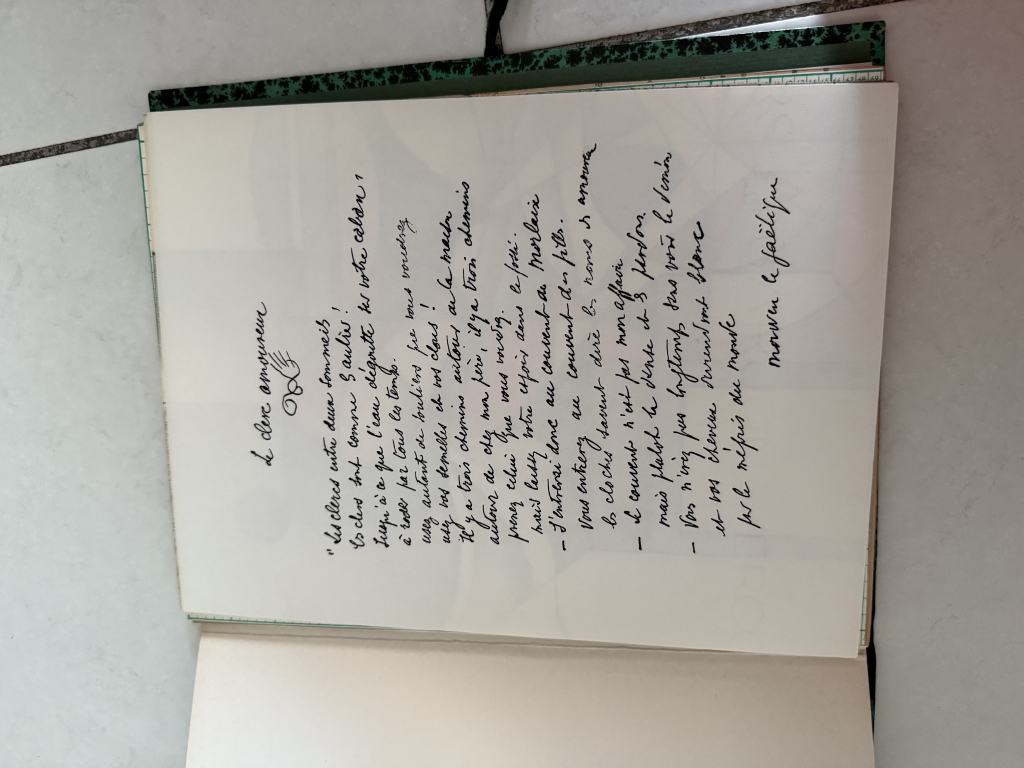 le clerc amoureux
"les clercs entre deux sommeils
les clercs sont comme autres!
jusqu'à ce que l'eau dégoutte de votre caban,
à roder par tous les temps.
usez autant de souliers que vous voudrez
usez vos semelles et vos clous!
Il y a trois chemins autour de la maison
autour de chez mon père, il y a trois chemins
prenez celui que vous voudrez.
mais laissez votre espoir dans le fossé.
– J'entrerai donc au couvent de Morlaix
Vous entrerez au couvent des filles.
les cloches savent dire les noms des amoureux
– le couvent n'est pas mon affaire
mais plutôt la danse et pardon
– Vous n'irez pas longtemps sans voir le démon
et vos cheveux deviendront blancs
par le mépris du monde
mouven le gaëlique